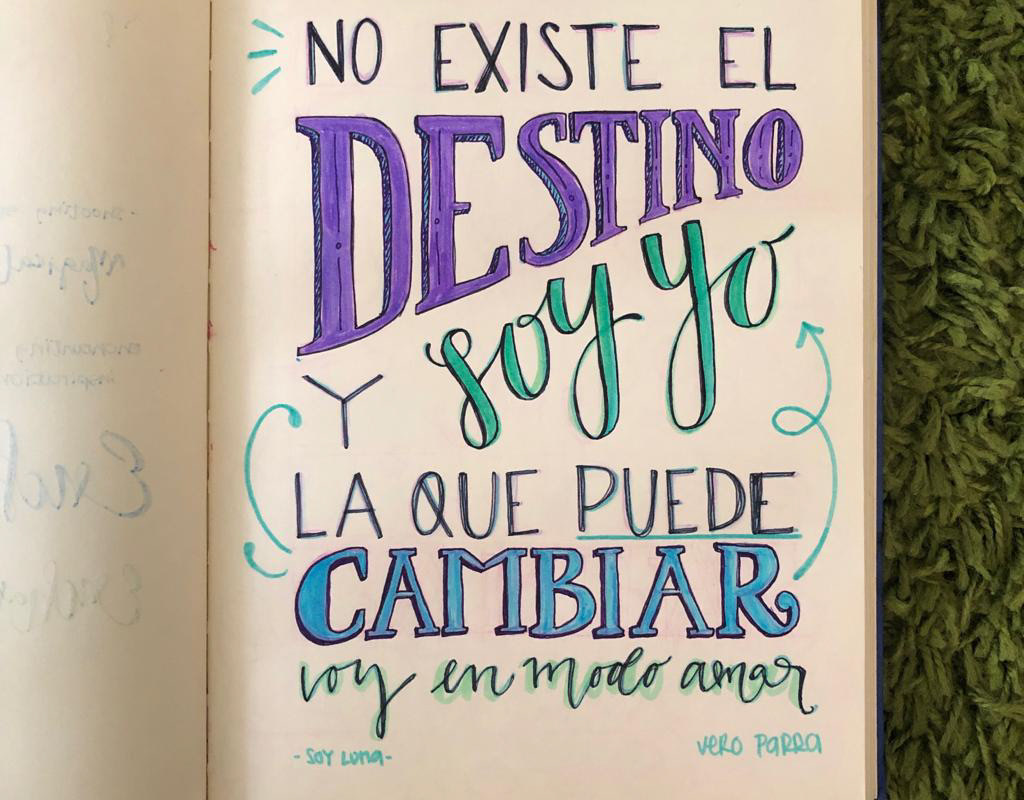 NO EXISTE EL
DESTINO
soy yo
Y
LA QUE PUEDE
CAMBIAR
voy en modo amar
- SOY LUNA -
VERO PARRA